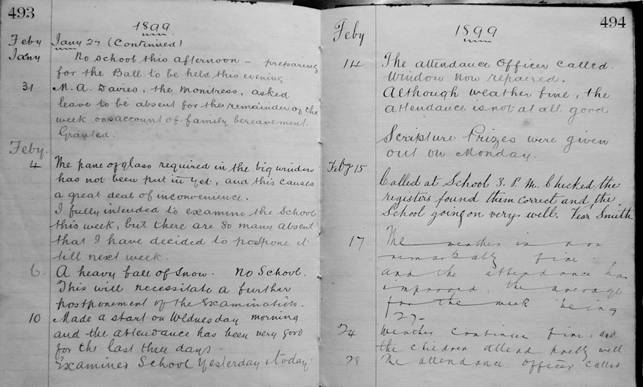 493
1899
Feby Jany 27 (Continued)
Jany No school this afternoon – preparing
for the Ball to be held this evening
31 M. A. Davies, the Montress, asked
leave to be absent for the remainder of the
week on account of family bereavement.
Granted.
Feby.
4 The pane of glass required in the big window
has not been put in yet, and this causes
a great deal of inconvenience.
I fully intended to examine the School
this week, but there are so many absent
that I have decided to postpone it
till next week.
6. A heavy fall of Snow. No School.
This will necessitate a further
postponement of the Examination.
10 Made a start on Wednesday morning
and the attendance has been very good
for the last three days.
Examined School Yesterday & today.
494
Feby 1899
14 The attendance Officer called.
Window now repaired.
Although weather fine, the
attendance is not at all good
Scripture Prizes were given
out on Monday.
Feby 15
Called at School 3. P.M. Checked the
registers found them correct and the
School going on very well. Smith
17 The weather is now
remarkably fine
and the attendance has
improved. the average
for the week being
24 Weather continues fine, and
the children attend pretty well
28 The attendance Officer called